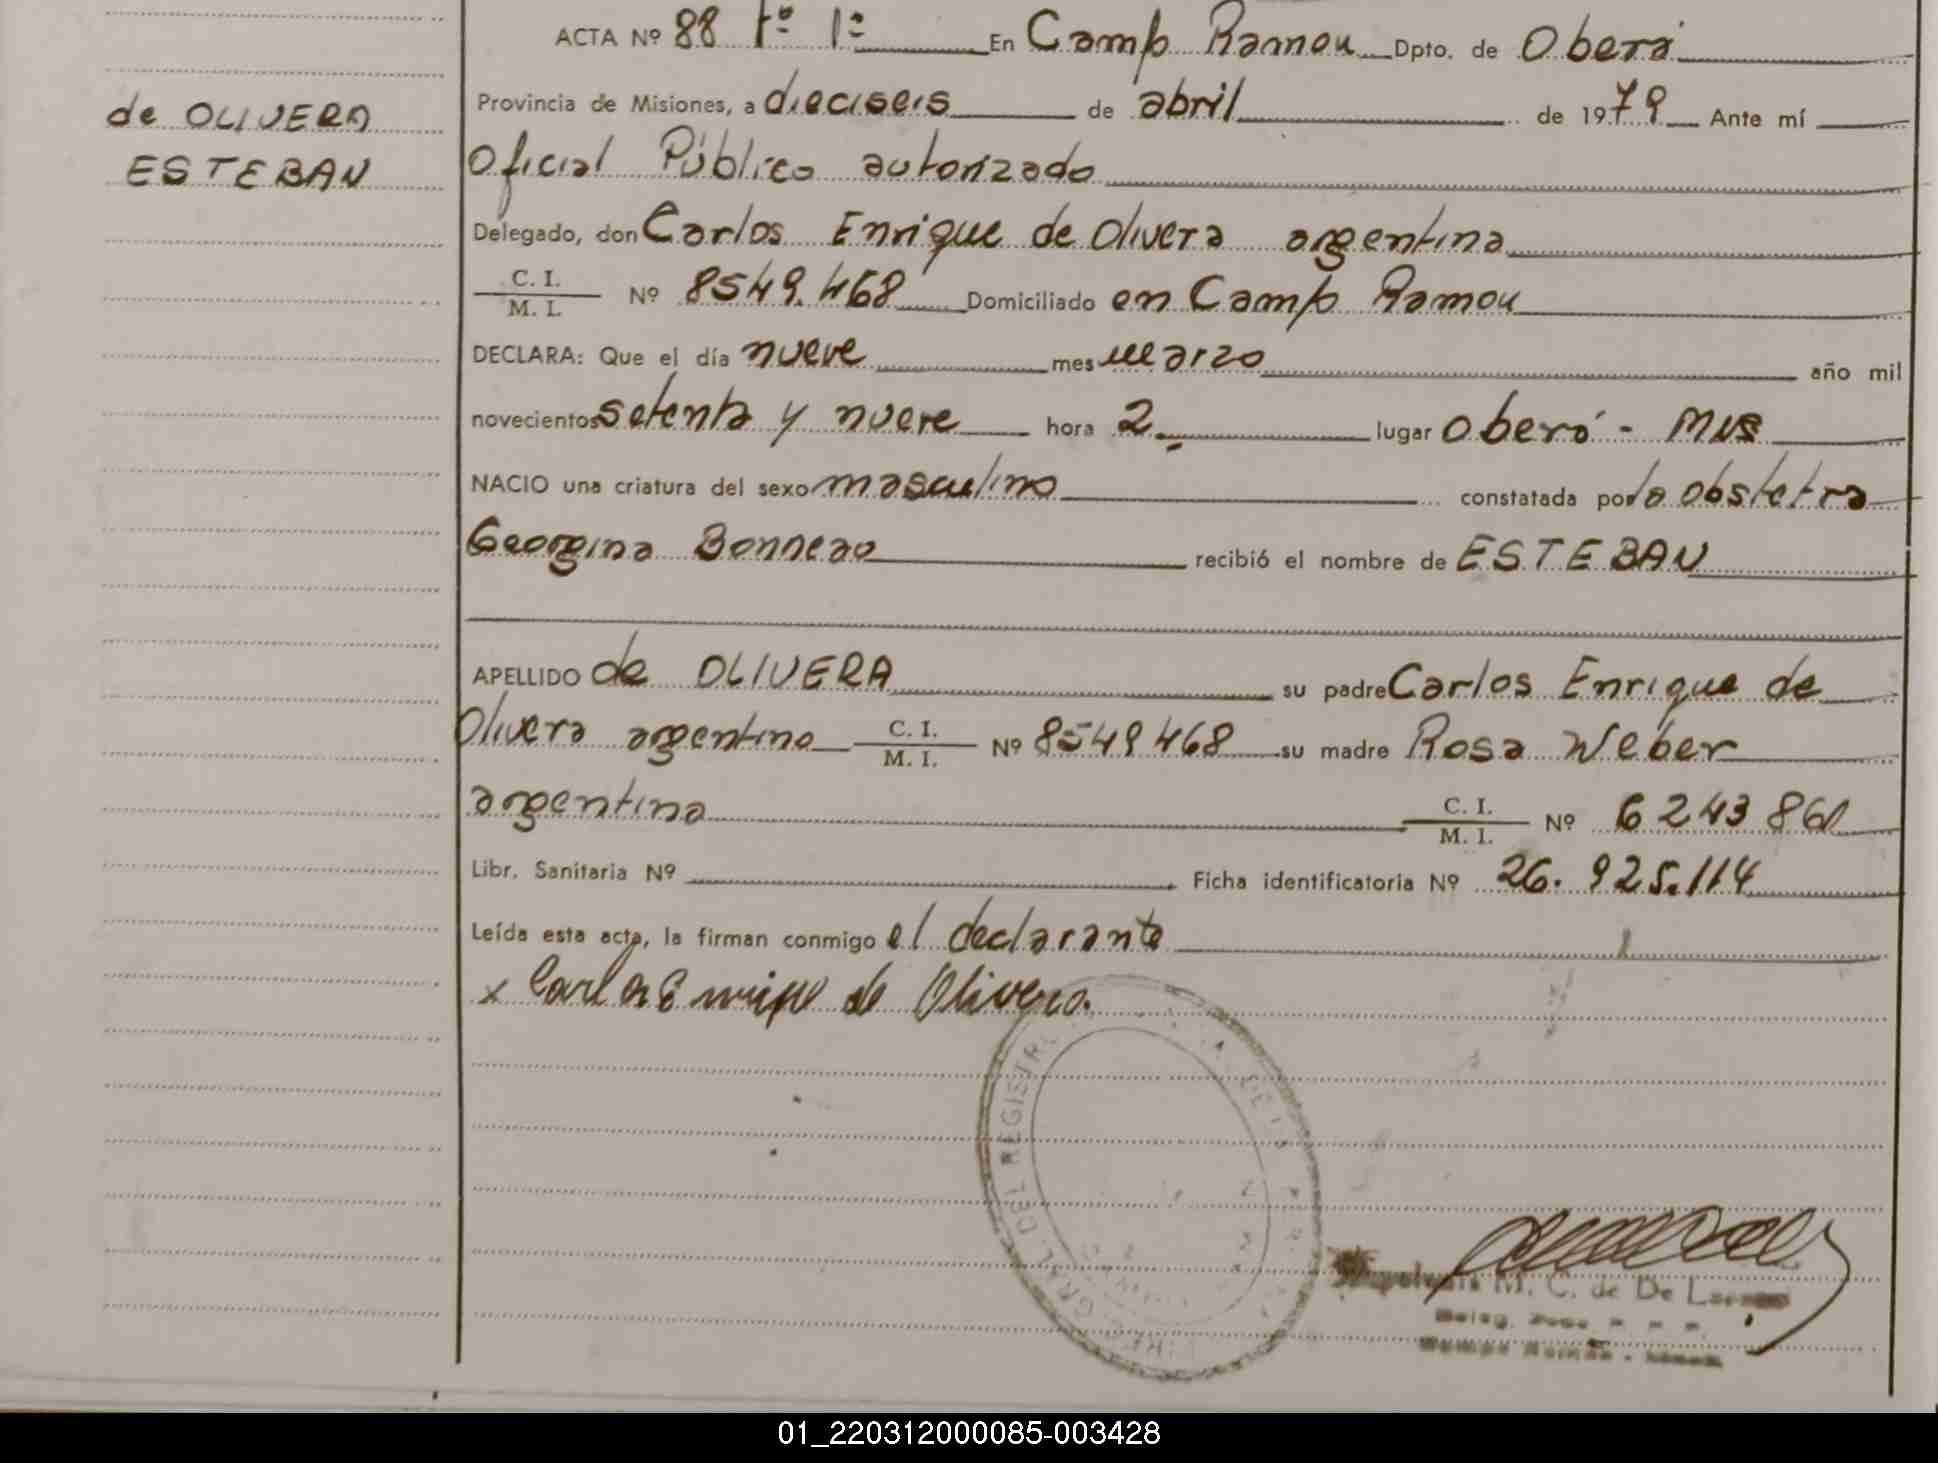 ACTA Nº 88 tº 1º En Camp Ramon Dpto. de Oberá
de OLIVERA
ESTEBAN
Provincia de Misiones, a dieciseis de abril de 1979 Ante mí
Oficial Público autorizado
Delegado, don Carlos Enrique de Olivera argentina
C. I. / M. I. Nº 8549.468 Domiciliado en Camp Ramon
DECLARA: Que el día nueve mes marzo año mil
novecientos setenta y nueve hora 2 lugar Oberá - Mns
NACIO una criatura del sexo masculino constatada por la obstetra
Georgina Bonneao recibió el nombre de ESTEBAN
APELLIDO de OLIVERA su padre Carlos Enrique de
Olivera argentino C. I. / M. I. Nº 8549468 su madre Rosa Weber
argentina C. I. / M. I. Nº 6243861
Libr. Sanitaria Nº Ficha identificatoria Nº 26.925.114
Leída esta acta, la firman conmigo el declarante
x Carlos Enrique de Olivera.
GRAL. DEL REGISTRO
M. C. de De
01_220312000085-003428